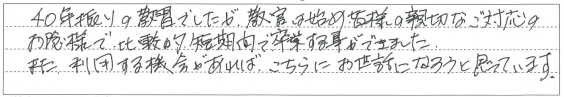 40年振りの教習でしたが、教室は始め皆様の親切なご対応の
お陰様で、比較的短期間で卒業する事ができました。
また、利用する機会があれば、こちらにお世話になろうと思っています。